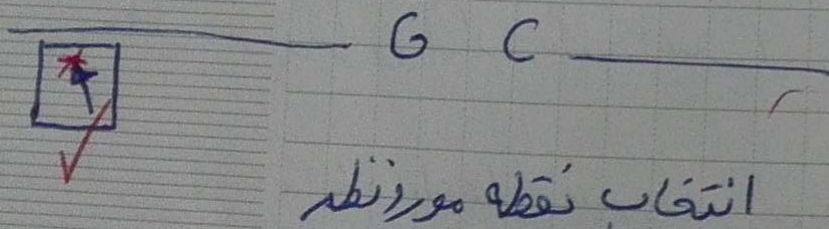 G C
انتخاب نقطه مورد نظر